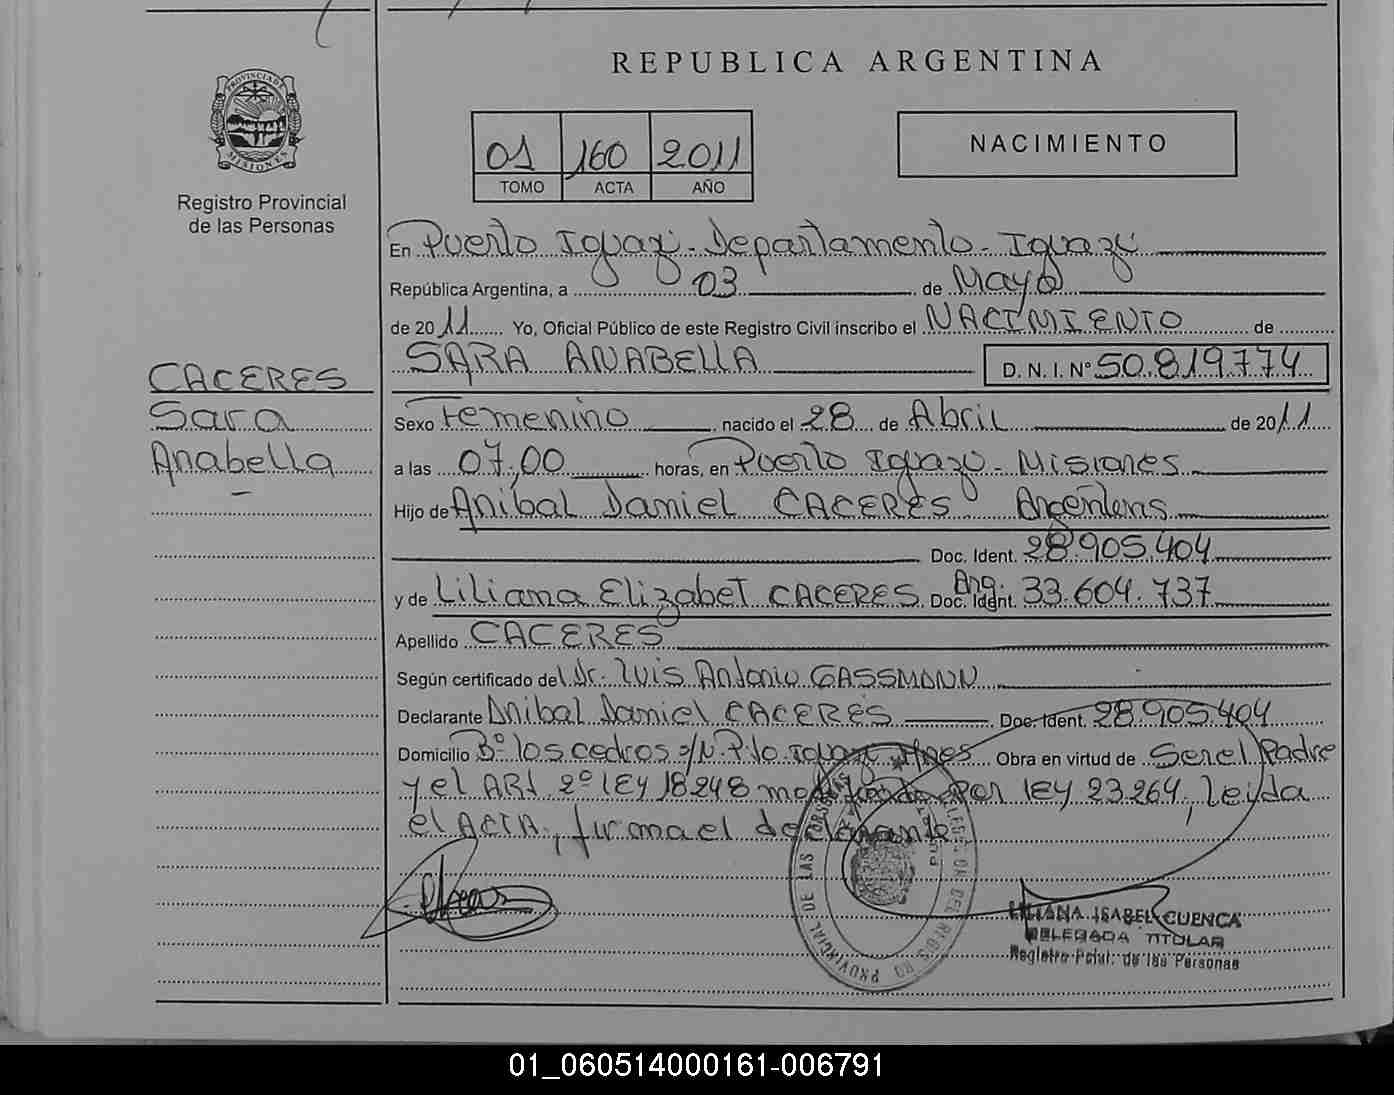 REPUBLICA ARGENTINA
PROVINCIA DE MISIONES
Registro Provincial
de las Personas
01 160 2011
TOMO ACTA AÑO
NACIMIENTO
En Puerto Iguazú - Departamento - Iguazú
República Argentina, a 03 de Mayo
de 2011 Yo, Oficial Público de este Registro Civil inscribo el NACIMIENTO de
SARA ANABELLA D. N. I. Nº 50.819.774
CACERES
Sara
Anabella
Sexo Femenino nacido el 28 de Abril de 2011
a las 07,00 horas, en Puerto Iguazú - Misiones
Hijo de Anibal Daniel CACERES Argentino
Doc. Ident. 28.905.404
y de Liliana Elizabet CACERES Arg. Doc. Ident. 33.604.737
Apellido CACERES
Según certificado del Dr. Luis Antonio GASSMANN
Declarante Anibal Daniel CACERES Doc. Ident. 28.905.404
Domicilio Bº los cedros s/N. Pto Iguazú Mnes Obra en virtud de Ser el Padre
y el ARt 2º lEy 18248 modificado por lEy 23264, leida
el ACTA, firma el declarante
PROVINCIAL DE LAS PERSONAS
LILIANA ISABEL CUENCA
DELEGADA TITULAR
Registro Pcial. de las Personas
01_060514000161-006791